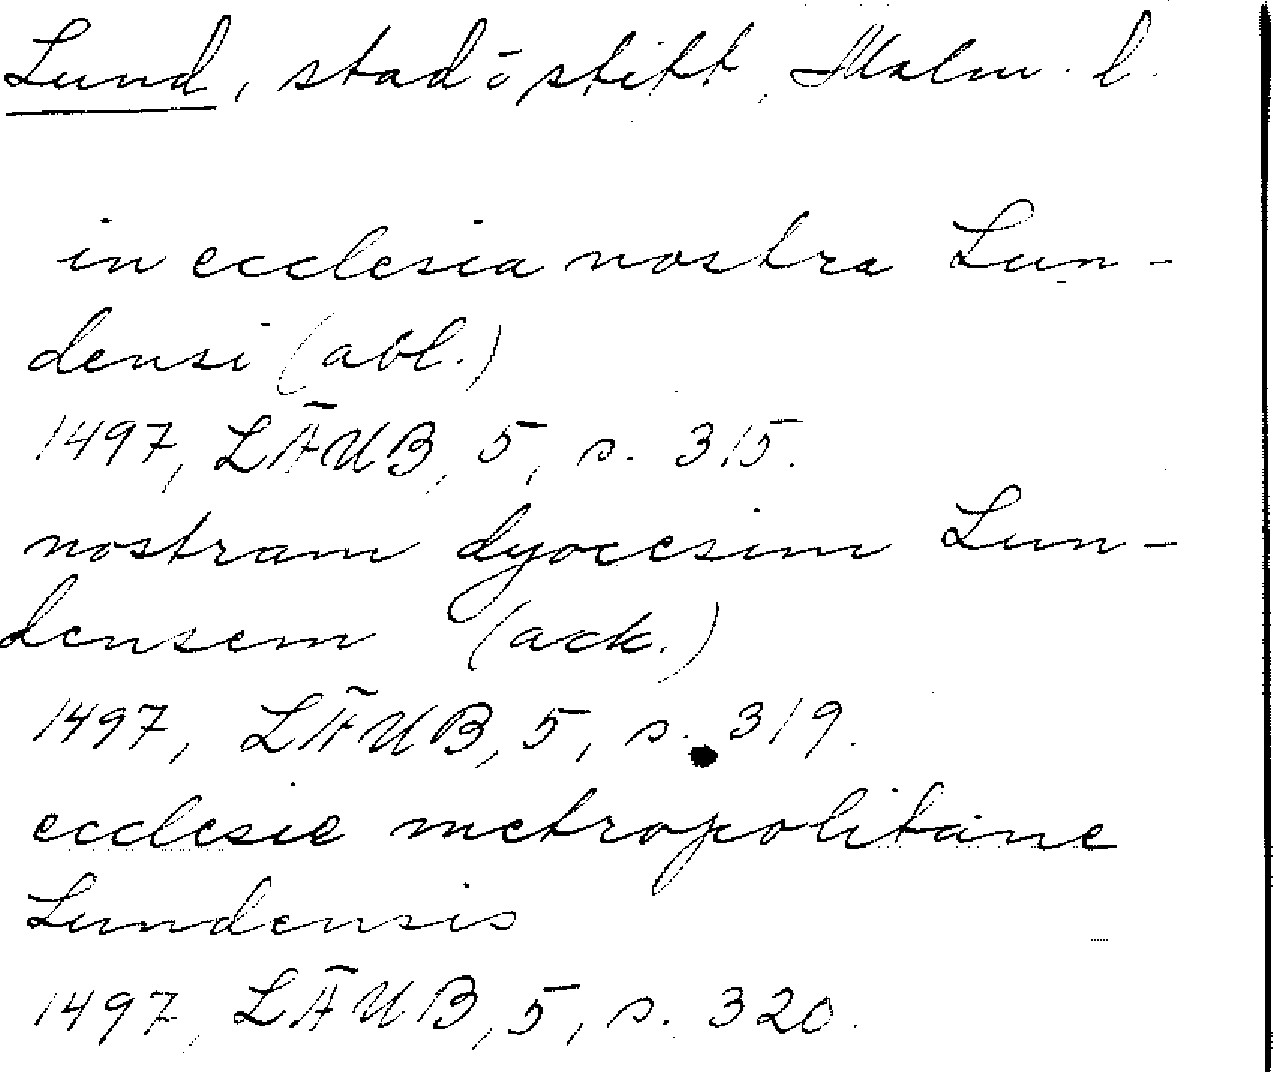 Lund, stad o stift, Malm. l.
in ecclesia nostra Lun-
densi (abl.)
1497, LÄUB, 5, s. 315.
nostram dyocesim Lun-
densem (ack.)
1497, LÄUB, 5, s. 319.
ecclesie metropolitane
Lundensis
1497, LÄUB, 5, s. 320.